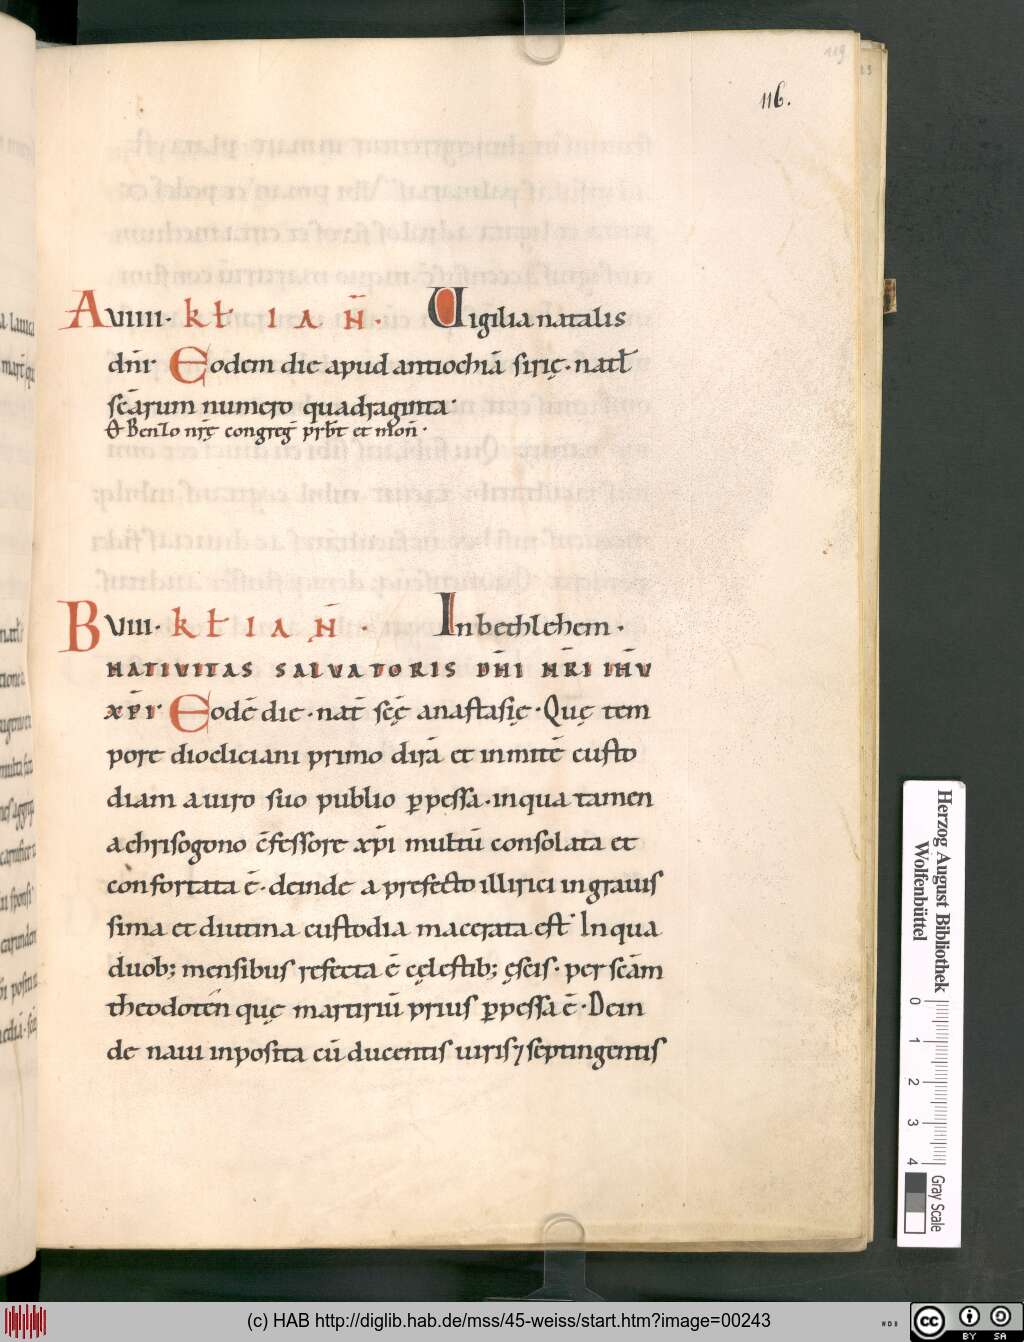 119
116.
A VIIII· kł IAN̄· Uigilia natalis
dn̄i· Eodem die apud antiochiā siriȩ· natł
sc̄arum numero quadraginta·
& Benzo nr̄ȩ congreḡ p̄rbt̄ et mon̄·
B VIII· kł IAN̄· In bethlehem·
NATIVITAS SALVATORIS DN̄I NR̄I IHV̄
XP̄I· Eodē die· nat̄ sc̄ȩ anastasiȩ· Quȩ tem
pore diocliciani primo dirā et inmitē custo
diam a uiro suo publio ꝑpessa· in qua tamen
a chrisogono c̄fessore xp̄i multū consolata et
confortata ē· deinde a prefecto illirici in grauis
sima et diutina custodia macerata est· In qua
duob; mensibus refecta ē cȩlestib; ȩscis· per sc̄am
theodoten quȩ martiriū prius ꝑpessa ē· Dein
de naui inposita cū ducentis uiris ⁊ septingentis
Herzog August Bibliothek
Wolfenbüttel
0 1 2 3 4
Gray Scale
(c) HAB http://diglib.hab.de/mss/45-weiss/start.htm?image=00243
cc BY SA